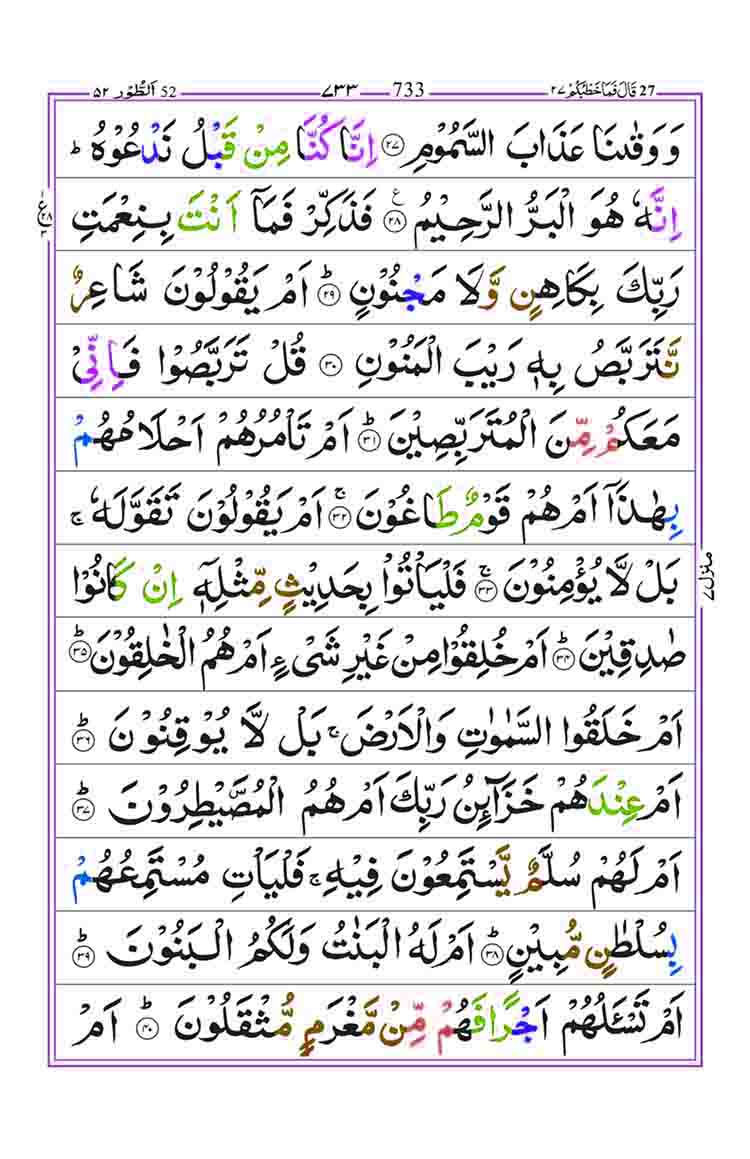 27 قَالَ فَمَا خَطْبُكُمْ ٢٧ 733 ٧٣٣ 52 اَلطُّوْر ٥٢
وَ وَقٰىنَا عَذَابَ السَّمُوْمِ ﴿۲۷﴾ اِنَّا كُنَّا مِنْ قَبْلُ نَدْعُوْهُ ؕ
اِنَّهٗ هُوَ الْبَرُّ الرَّحِیْمُ ﴿۲۸﴾ فَذَكِّرْ فَمَاۤ اَنْتَ بِنِعْمَتِ
رَبِّكَ بِكَاهِنٍ وَّلَا مَجْنُوْنٍ ؕ﴿۲۹﴾ اَمْ یَقُوْلُوْنَ شَاعِرٌ
نَّتَرَبَّصُ بِهٖ رَیْبَ الْمَنُوْنِ ﴿۳۰﴾ قُلْ تَرَبَّصُوْا فَاِنِّیْ
مَعَكُمْ مِّنَ الْمُتَرَبِّصِیْنَ ؕ﴿۳۱﴾ اَمْ تَاْمُرُهُمْ اَحْلَامُهُمْ
بِهٰذَاۤ اَمْ هُمْ قَوْمٌ طَاغُوْنَ ۚ﴿۳۲﴾ اَمْ یَقُوْلُوْنَ تَقَوَّلَهٗ ۚ
بَلْ لَّا یُؤْمِنُوْنَ ۚ﴿۳۳﴾ فَلْیَاْتُوْا بِحَدِیْثٍ مِّثْلِهٖۤ اِنْ كَانُوْا
صٰدِقِیْنَ ؕ﴿۳۴﴾ اَمْ خُلِقُوْا مِنْ غَیْرِ شَیْءٍ اَمْ هُمُ الْخٰلِقُوْنَ ؕ﴿۳۵﴾
اَمْ خَلَقُوا السَّمٰوٰتِ وَالْاَرْضَ ۚ بَلْ لَّا یُوْقِنُوْنَ ؕ﴿۳۶﴾
اَمْ عِنْدَهُمْ خَزَآىِٕنُ رَبِّكَ اَمْ هُمُ الْمُصَۜیْطِرُوْنَ ؕ﴿۳۷﴾
اَمْ لَهُمْ سُلَّمٌ یَّسْتَمِعُوْنَ فِیْهِ ۚ فَلْیَاْتِ مُسْتَمِعُهُمْ
بِسُلْطٰنٍ مُّبِیْنٍ ؕ﴿۳۸﴾ اَمْ لَهُ الْبَنٰتُ وَلَكُمُ الْبَنُوْنَ ؕ﴿۳۹﴾
اَمْ تَسْـَٔلُهُمْ اَجْرًا فَهُمْ مِّنْ مَّغْرَمٍ مُّثْقَلُوْنَ ؕ﴿۴۰﴾ اَمْ
منزل ٧